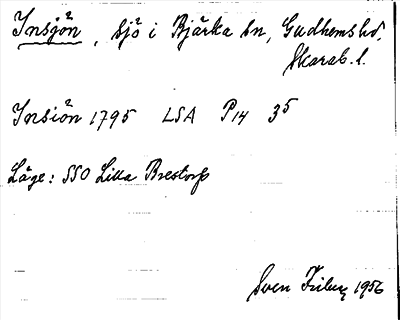 Insjön, sjö i Bjärka sn, Gudhems hd,
Skarab. l.
Insiön 1795 LSA P14 3⁵
Läge: SSO Lilla Brestorp
Sven Friberg 1956